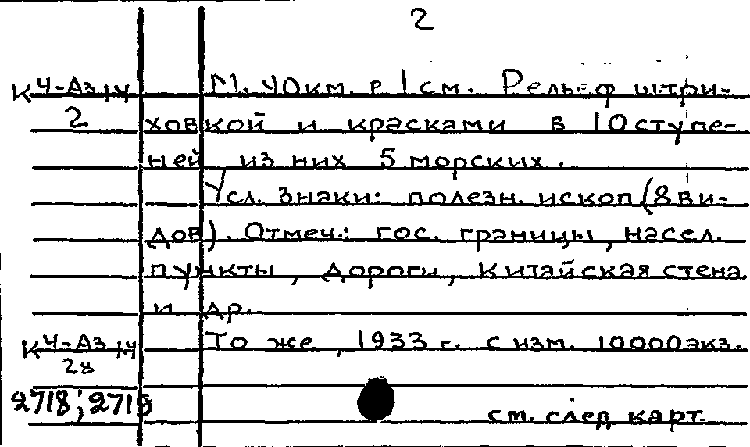 2
К Ч-Аз 14 М. 40км. в 1 см. Рельеф штри-
2 ховкой и красками в 10 ступе-
ней из них 5 морских.
Усл. знаки: полезн. ископ (8 ви-
дов). Отмеч.: гос. границы, насел.
пункты, дороги, Китайская стена
и др.
К Ч-Аз 14 То же, 1933 г. с изм. 10000 экз.
28
2718; 2719
см. след карт.